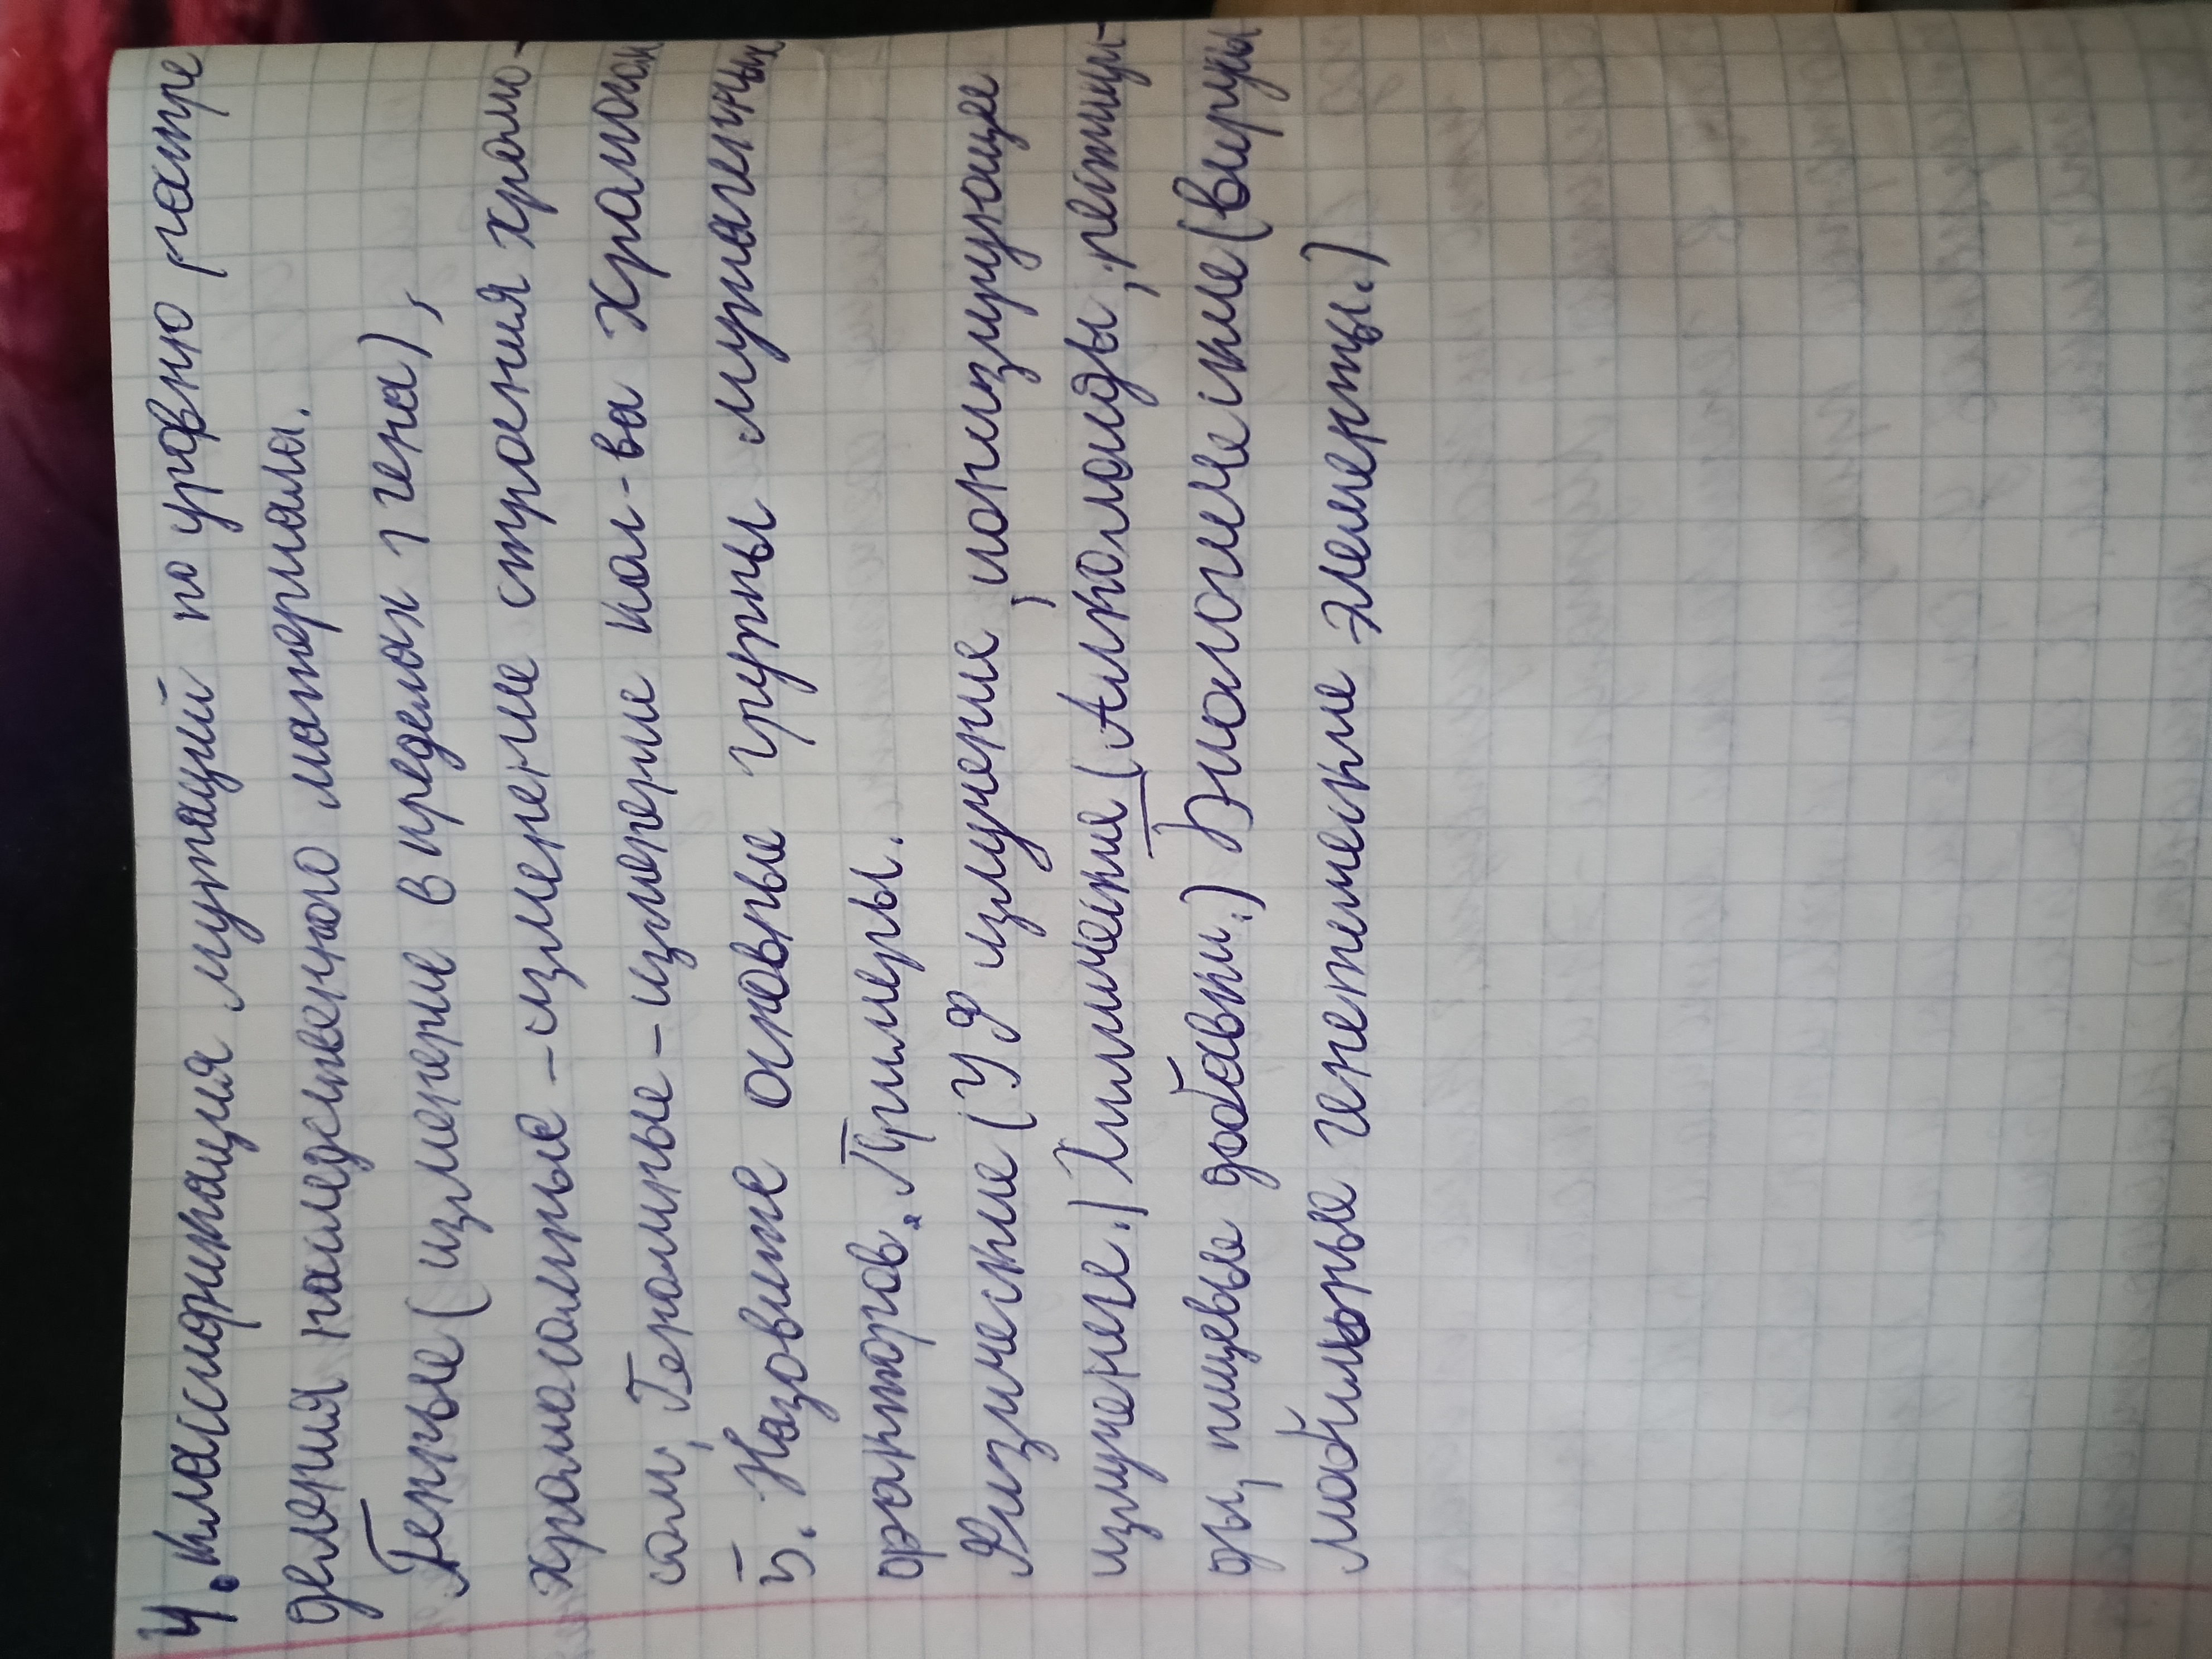 4. Классификация мутаций по уровню распре
деления наследственного материала.
Генные (изменение в пределах 1 гена),
хромосомные – изменение строения хромо-
сом, Геномные – изменение кол-ва Хромосом
5. Назовите основные группы мутагенных
факторов. Примеры.
Физические (УФ излучение, ионизирующее
излучение.) Химические (Алкалоиды, пестици-
ды, пищевые добавки.) Биологические (вирусы
мобильные генетические элементы.)